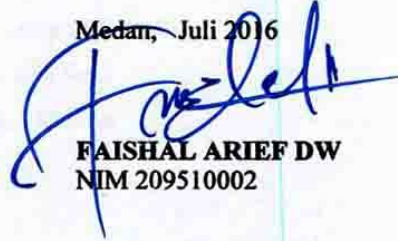 Medan, Juli 2016
FAISHAL ARIEF DW
NIM 209510002